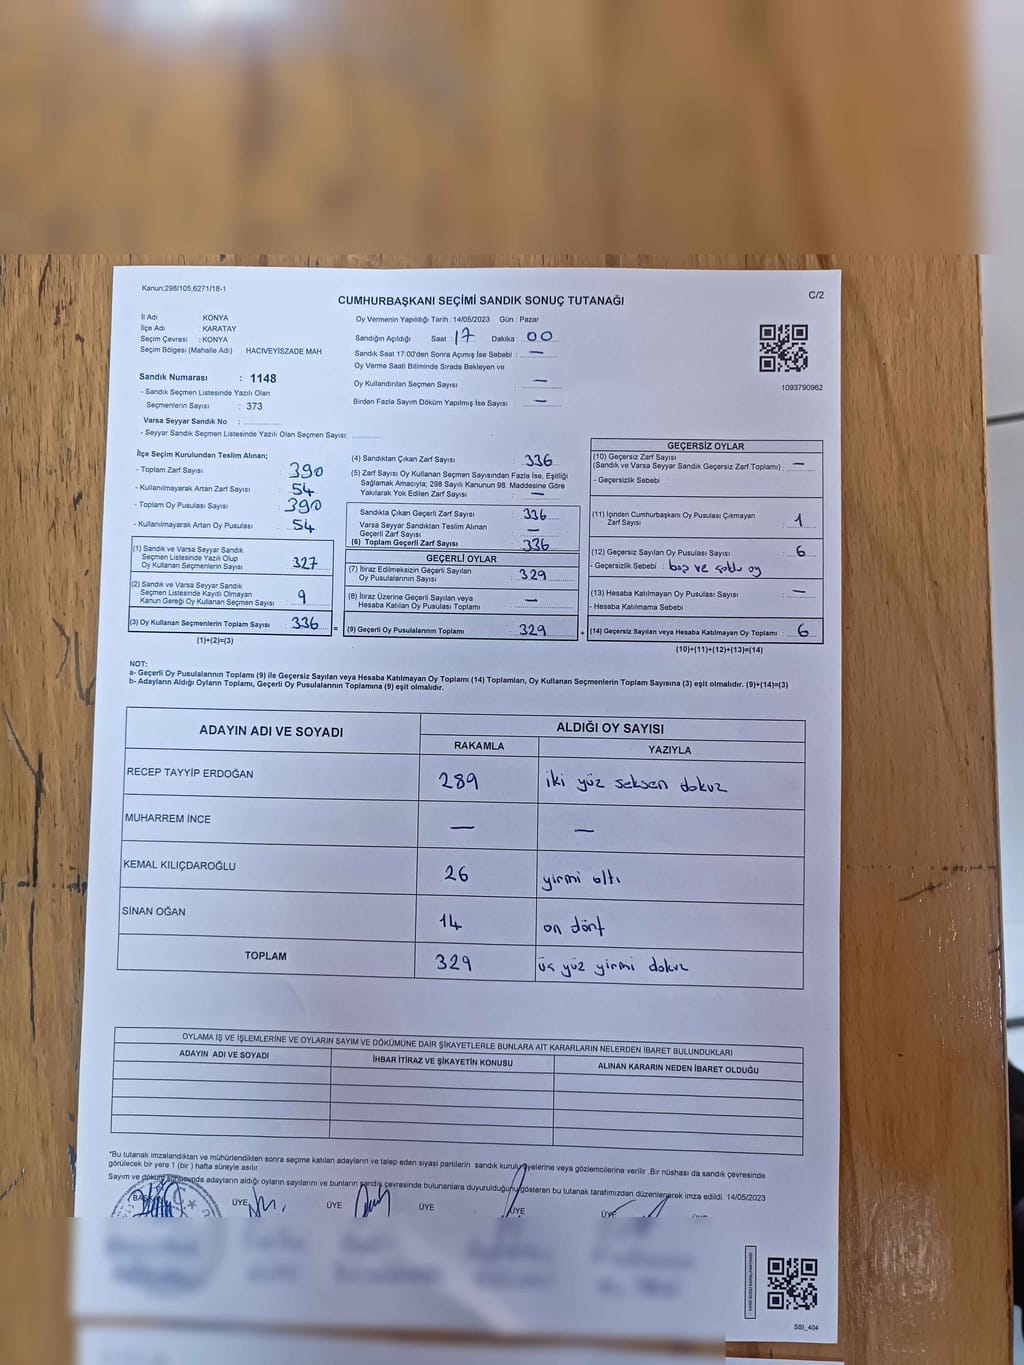 Kanun;298/105,6271/18-1
C/2
CUMHURBAŞKANI SEÇİMİ SANDIK SONUÇ TUTANAĞI
İl Adı : KONYA
İlçe Adı : KARATAY
Seçim Çevresi : KONYA
Seçim Bölgesi (Mahalle Adı) : HACIVEYİSZADE MAH
Sandık Numarası : 1148
- Sandık Seçmen Listesinde Yazılı Olan
Seçmenlerin Sayısı : 373
Varsa Seyyar Sandık No :
- Seyyar Sandık Seçmen Listesinde Yazılı Olan Seçmen Sayısı:
Oy Vermenin Yapıldığı Tarih : 14/05/2023 Gün : Pazar
Sandığın Açıldığı Saat : 17 Dakika : 00
Sandık Saat 17:00'den Sonra Açımış İse Sebebi : —
Oy Verme Saati Bitiminde Sırada Bekleyen ve
Oy Kullandırılan Seçmen Sayısı : —
Birden Fazla Sayım Döküm Yapılmış İse Sayısı : —
1093790962
İlçe Seçim Kurulundan Teslim Alınan;
- Toplam Zarf Sayısı : 390
- Kullanılmayarak Artan Zarf Sayısı : 54
- Toplam Oy Pusulası Sayısı : 390
- Kullanılmayarak Artan Oy Pusulası : 54
(1) Sandık ve Varsa Seyyar Sandık
Seçmen Listesinde Yazılı Olup
Oy Kullanan Seçmenlerin Sayısı : 327
(2) Sandık ve Varsa Seyyar Sandık
Seçmen Listesinde Kayıtlı Olmayan
Kanun Gereği Oy Kullanan Seçmen Sayısı : 9
(3) Oy Kullanan Seçmenlerin Toplam Sayısı : 336 =
(1)+(2)=(3)
(4) Sandıktan Çıkan Zarf Sayısı : 336
(5) Zarf Sayısı Oy Kullanan Seçmen Sayısından Fazla İse, Eşitliği
Sağlamak Amacıyla; 298 Sayılı Kanunun 98. Maddesine Göre
Yakılarak Yok Edilen Zarf Sayısı : —
Sandıkta Çıkan Geçerli Zarf Sayısı : 336
Varsa Seyyar Sandıktan Teslim Alınan
Geçerli Zarf Sayısı : —
(6) Toplam Geçerli Zarf Sayısı : 336
GEÇERLİ OYLAR
(7) İtiraz Edilmeksizin Geçerli Sayılan
Oy Pusulalarının Sayısı : 329
(8) İtiraz Üzerine Geçerli Sayılan veya
Hesaba Katılan Oy Pusulası Toplamı : —
(9) Geçerli Oy Pusulalarının Toplamı : 329 +
GEÇERSİZ OYLAR
(10) Geçersiz Zarf Sayısı
(Sandık ve Varsa Seyyar Sandık Geçersiz Zarf Toplamı) : —
- Geçersizlik Sebebi :
(11) İçinden Cumhurbaşkanı Oy Pusulası Çıkmayan
Zarf Sayısı : 1
(12) Geçersiz Sayılan Oy Pusulası Sayısı : 6
- Geçersizlik Sebebi : boş ve çoklu oy
(13) Hesaba Katılmayan Oy Pusulası Sayısı : —
- Hesaba Katılmama Sebebi :
(14) Geçersiz Sayılan veya Hesaba Katılmayan Oy Toplamı : 6
(10)+(11)+(12)+(13)=(14)
NOT:
a- Geçerli Oy Pusulalarının Toplamı (9) ile Geçersiz Sayılan veya Hesaba Katılmayan Oy Toplamı (14) Toplamları, Oy Kullanan Seçmenlerin Toplam Sayısına (3) eşit olmalıdır. (9)+(14)=(3)
b- Adayların Aldığı Oyların Toplamı, Geçerli Oy Pusulalarının Toplamına (9) eşit olmalıdır.
ADAYIN ADI VE SOYADI
ALDIĞI OY SAYISI
RAKAMLA YAZIYLA
RECEP TAYYİP ERDOĞAN 289 iki yüz seksen dokuz
MUHARREM İNCE — —
KEMAL KILIÇDAROĞLU 26 yirmi altı
SİNAN OĞAN 14 on dört
TOPLAM 329 üç yüz yirmi dokuz
OYLAMA İŞ VE İŞLEMLERİNE VE OYLARIN SAYIM VE DÖKÜMÜNE DAİR ŞİKAYETLERLE BUNLARA AİT KARARLARIN NELERDEN İBARET BULUNDUKLARI
ADAYIN ADI VE SOYADI İHBAR İTİRAZ VE ŞİKAYETİN KONUSU ALINAN KARARIN NEDEN İBARET OLDUĞU
*Bu tutanak imzalandıktan ve mühürlendikten sonra seçime katılan adayların ve talep eden siyasi partilerin sandık kurulu üyelerine veya gözlemcilerine verilir .Bir nüshası da sandık çevresinde
görülecek bir yere 1 (bir ) hafta süreyle asılır.
Sayım ve döküm sonucunda adayların aldığı oyların sayılarını ve bunların sandık çevresinde bulunanlara duyurulduğunu gösteren bu tutanak tarafımızdan düzenlenerek imza edildi. 14/05/2023
BAŞKAN ÜYE ÜYE ÜYE ÜYE ÜYE
SSI_404